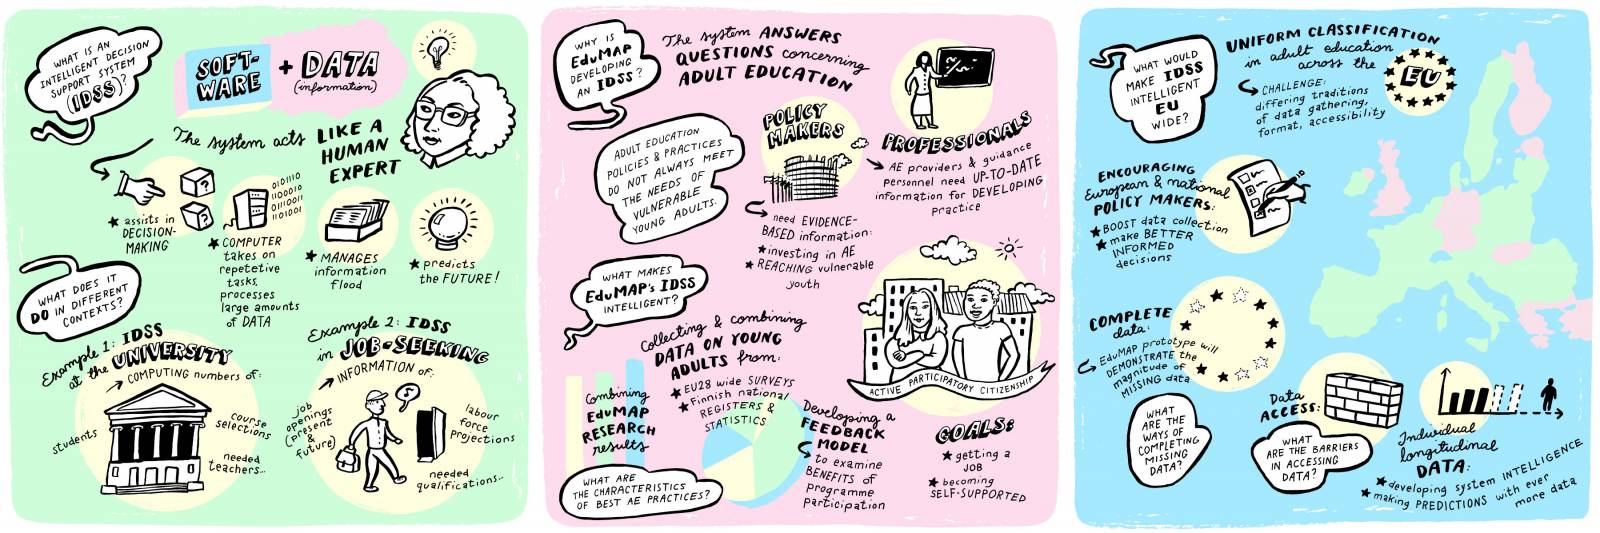 WHAT IS AN
INTELLIGENT DECISION
SUPPORT SYSTEM
(IDSS)?
SOFT-
WARE
+ DATA
(information)
The system acts LIKE A
HUMAN
EXPERT
?
?
★ assists in
DECISION-
MAKING
0101110
1100010
1100011
1101001
★ COMPUTER
takes on
repetetive
tasks,
processes
large amounts
of DATA
★ MANAGES
information
flood
★ predicts
the FUTURE!
WHAT DOES IT
DO IN DIFFERENT
CONTEXTS?
Example 1: IDSS
at the UNIVERSITY
→ COMPUTING numbers of:
students
course
selections
needed
teachers...
Example 2: IDSS
in JOB-SEEKING
→ INFORMATION of:
job
openings
(present
&
future)
labour
force
projections
needed
qualifications...
WHY IS
EduMAP
DEVELOPING
AN IDSS?
The system ANSWERS
QUESTIONS concerning
ADULT EDUCATION
ADULT EDUCATION
POLICIES & PRACTICES
DO NOT ALWAYS MEET
THE NEEDS OF
VULNERABLE
YOUNG ADULTS.
POLICY
MAKERS
need EVIDENCE-
BASED information:
★ investing in AE
★ REACHING vulnerable
youth
PROFESSIONALS
→ AE providers & guidance
personnel need UP-TO-DATE
information for DEVELOPING
practice
WHAT MAKES
EduMAP's IDSS
INTELLIGENT?
Collecting & combining
DATA ON YOUNG
ADULTS from:
★ EU28 wide SURVEYS
★ Finnish national
REGISTERS &
STATISTICS
Combining
EduMAP
RESEARCH
results
WHAT ARE
THE CHARACTERISTICS
OF BEST AE PRACTICES?
Developing a
FEEDBACK
MODEL
to examine
BENEFITS of
programme
participation
ACTIVE PARTICIPATORY CITIZENSHIP
GOALS:
★ getting a
JOB
★ becoming
SELF-SUPPORTED
WHAT WOULD
MAKE IDSS
INTELLIGENT
EU
WIDE?
UNIFORM CLASSIFICATION
in adult education
across the
EU
CHALLENGE:
differing traditions
of data gathering,
format, accessibility
ENCOURAGING
European & national
POLICY MAKERS:
★ BOOST data collection
★ make BETTER
INFORMED
decisions
COMPLETE
data:
EduMAP prototype will
DEMONSTRATE the
magnitude of
MISSING data
WHAT
ARE THE
WAYS OF
COMPLETING
MISSING
DATA?
Data
ACCESS:
WHAT
ARE THE BARRIERS
IN ACCESSING
DATA?
Individual
longitudinal
DATA:
★ developing system INTELLIGENCE
★ making PREDICTIONS with ever
more data